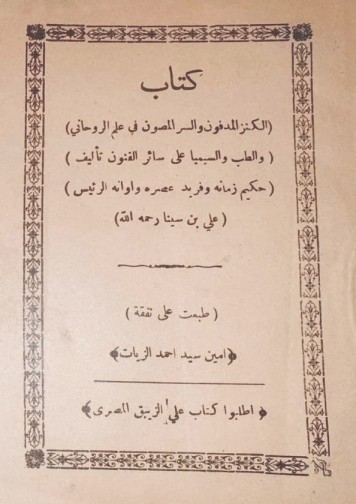 كتاب
(الكنز المدفون والسر المصون في علم الروحاني)
( والطب والسيميا على سائر الفنون تأليف )
( حكيم زمانه وفريد عصره واوانه الرئيس )
( علي بن سينا رحمه الله )
( طبعت على نفقة )
﴿امين سيد احمد الزيات﴾
﴿ اطلبوا كتاب علي الزيبق المصرى ﴾